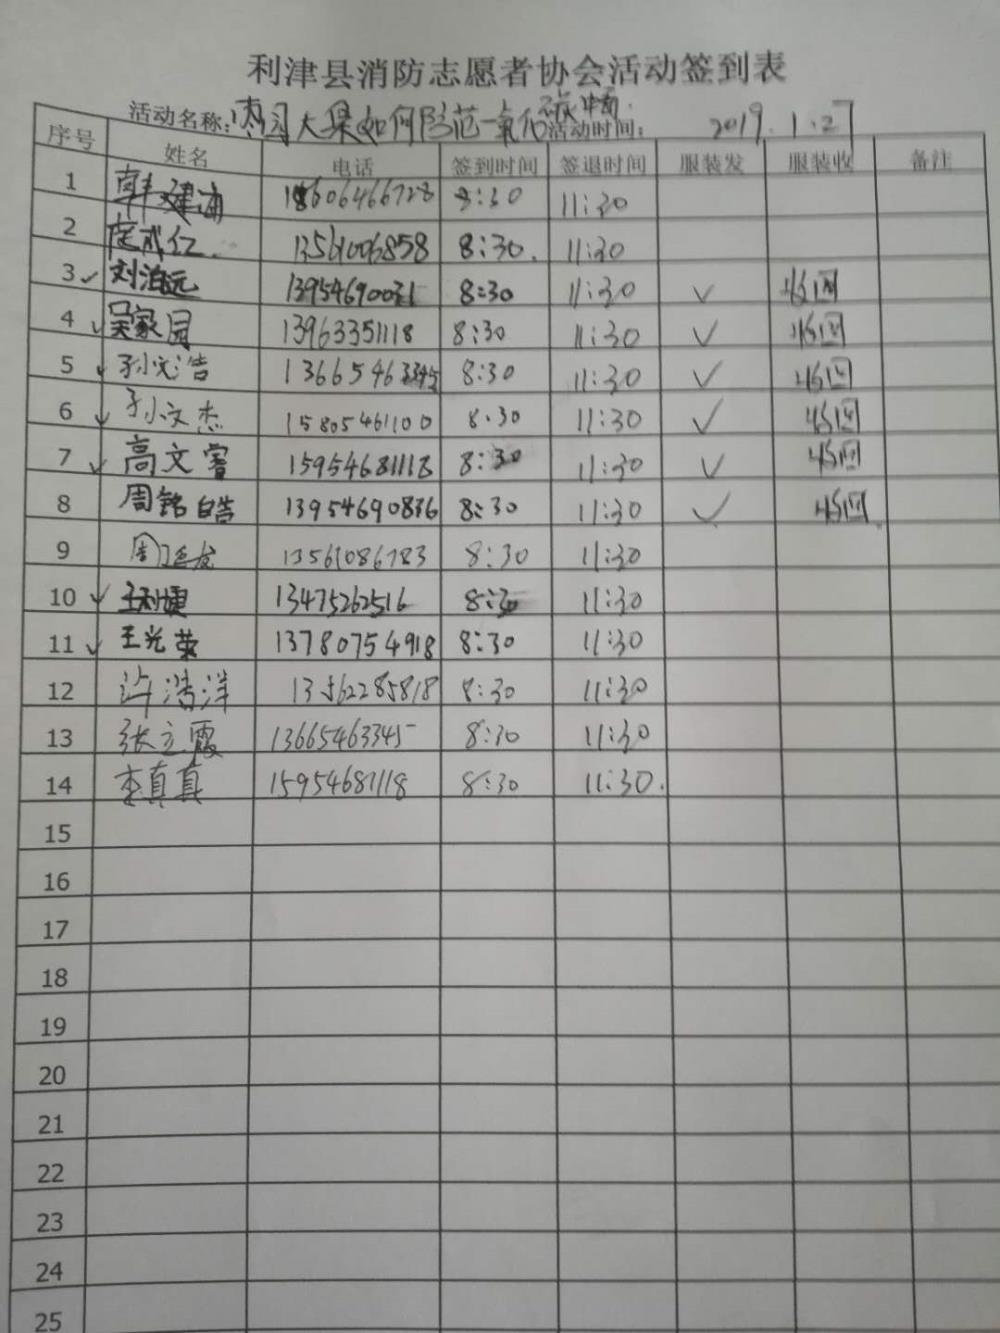 利津县消防志愿者协会活动签到表
活动名称:枣园大集如何防范一氧化碳中毒 活动时间: 2019.1.27
序号 姓名 电话 签到时间 签退时间 服装发 服装收 备注
1 18606466728 8:30 11:30
2 13561006858 8:30. 11:30
3 ✓ 刘泊远 13954690031 8:30 11:30 ✓ 收回
4 ✓ 吴家园 13963351118 8:30 11:30 ✓ 收回
5 ✓ 孙文浩 13665463345 8:30 11:30 ✓ 收回
6 ✓ 孙文杰 15805461100 8:30 11:30 ✓ 收回
7 ✓ 高文睿 15954681118 8:30 11:30 ✓ 收回
8 周铭皓 13954690836 8:30 11:30 ✓ 收回
9 13561086783 8:30 11:30
10 ✓ 13475262516 8:30 11:30
11 ✓ 王光荣 13780754918 8:30 11:30
12 许浩洋 13562285818 8:30 11:30
13 张立霞 13665463345 8:30 11:30
14 李真真 15954681118 8:30 11:30.
15
16
17
18
19
20
21
22
23
24
25